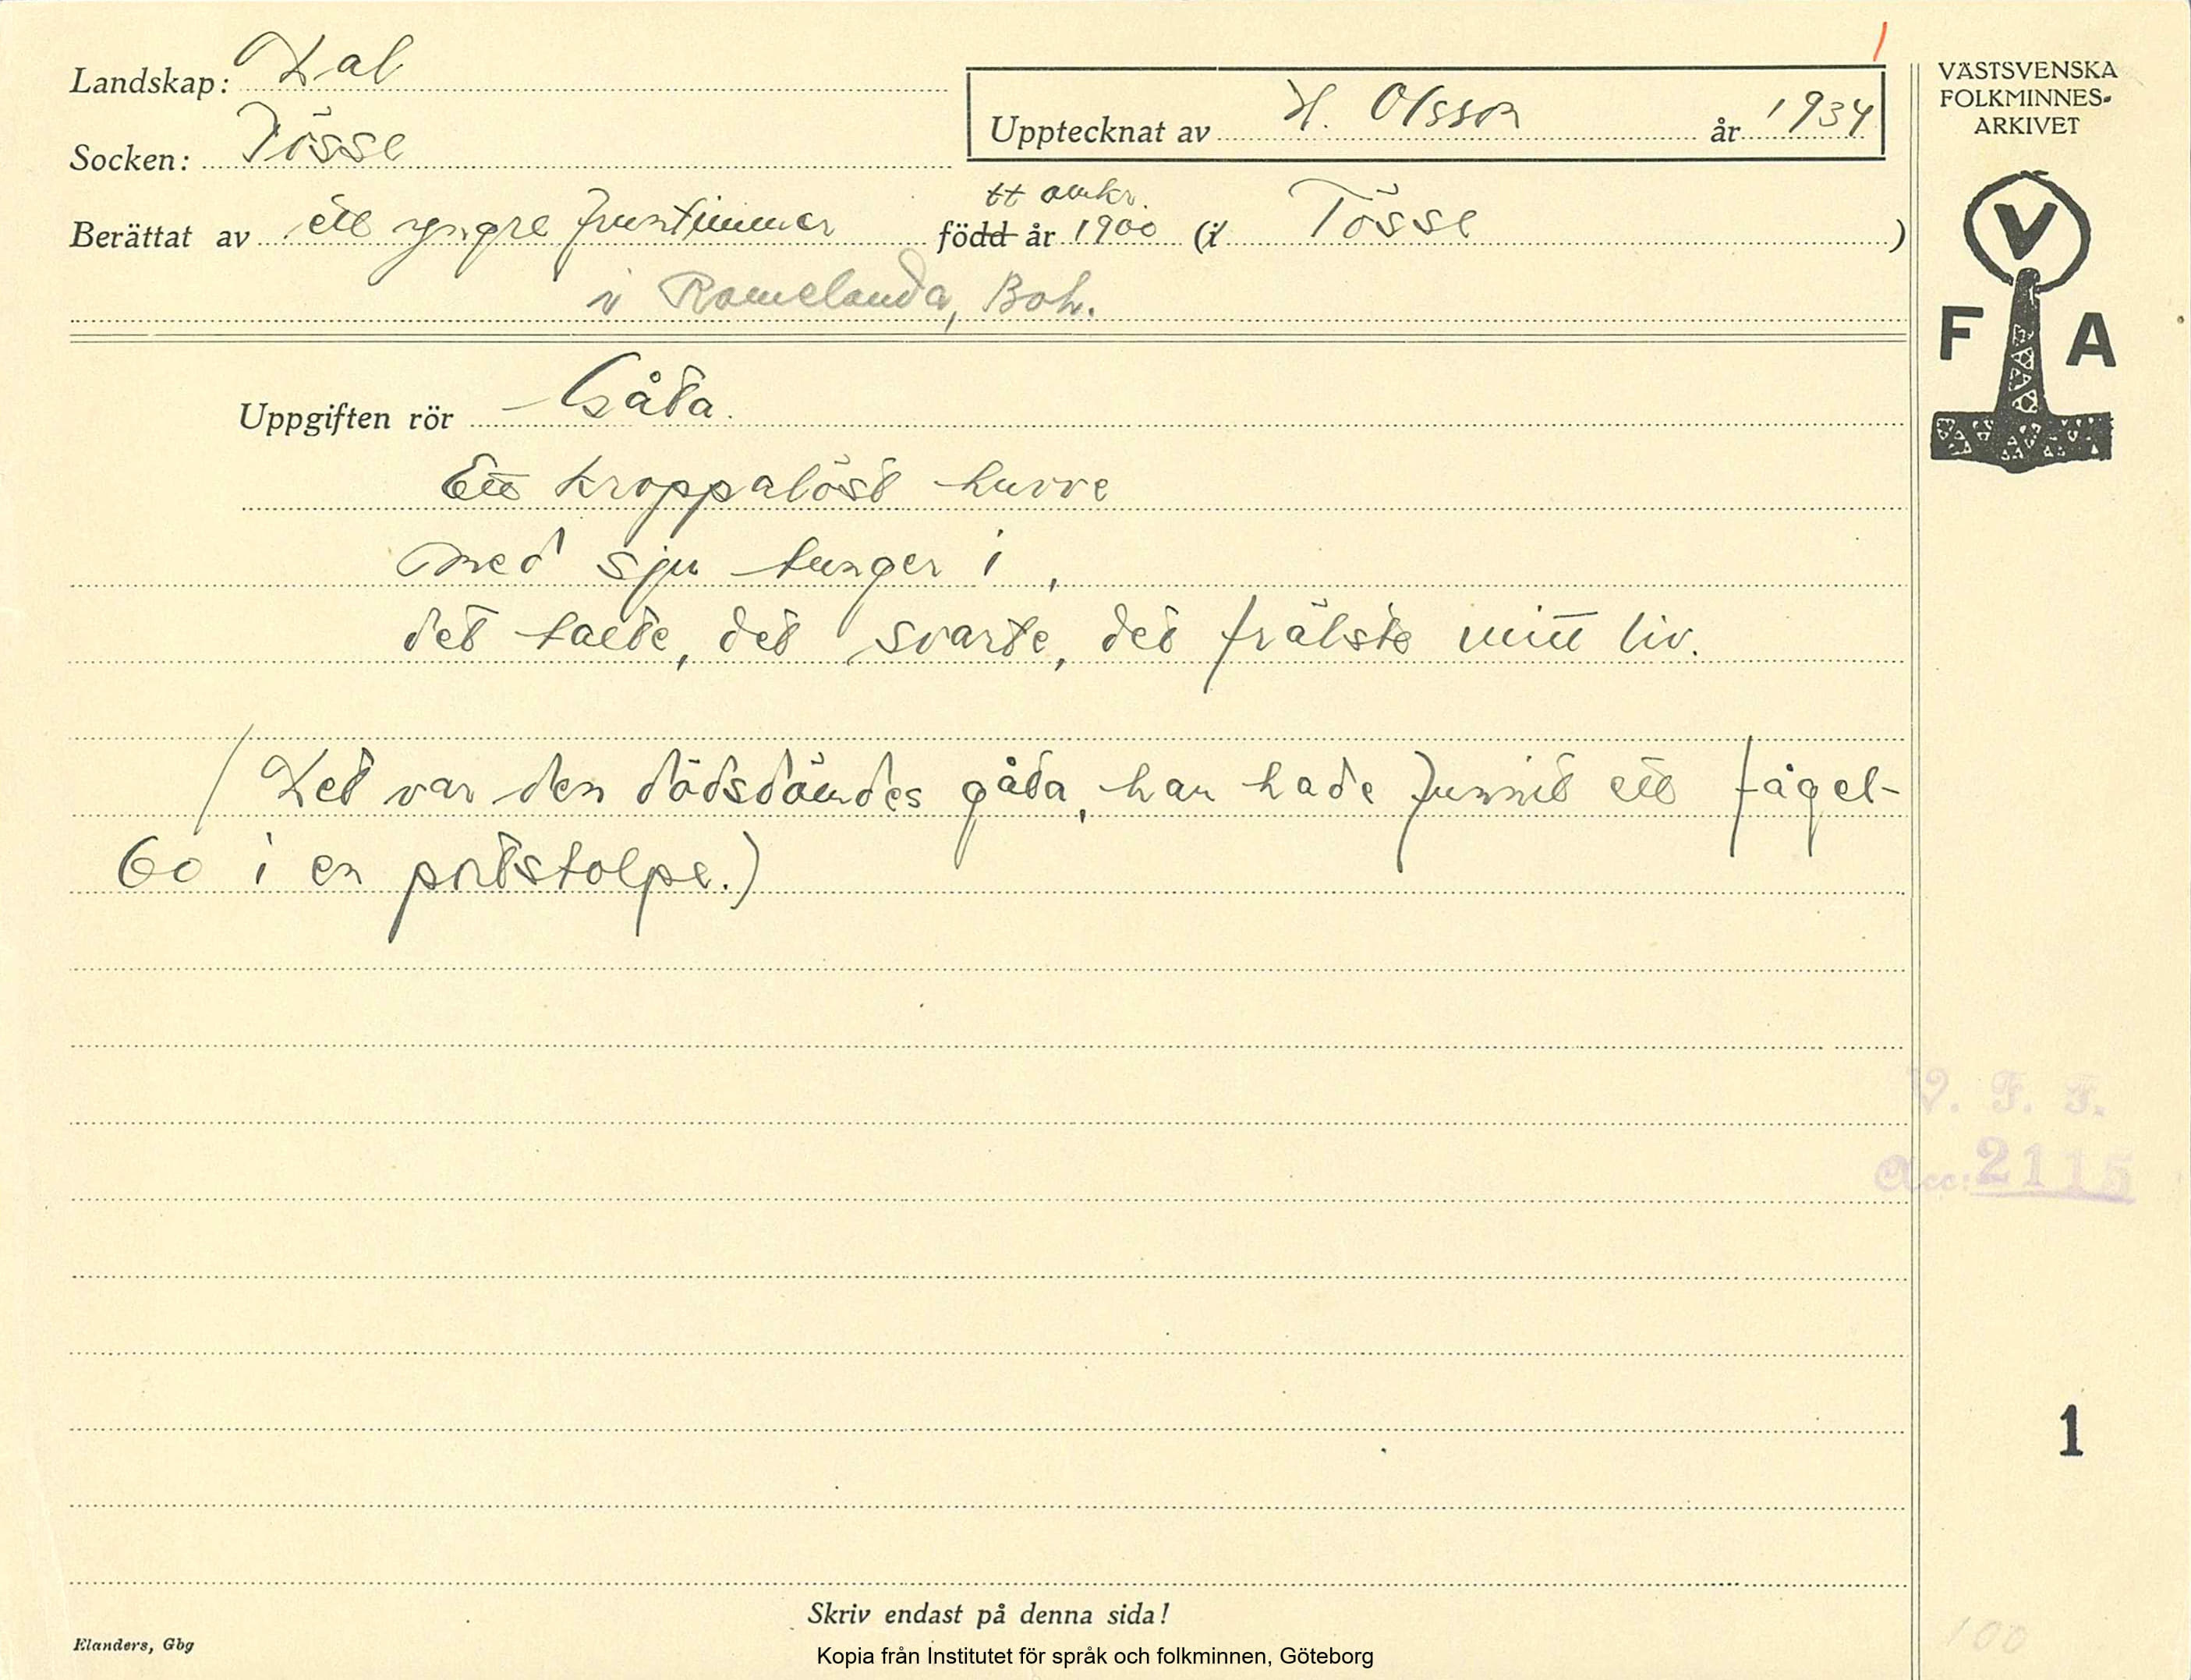 Landskap: Dal
Socken: Tösse
Upptecknat av H. Olsson år 1934
VÄSTSVENSKA
FOLKMINNES-
ARKIVET
Berättat av ett yngre fruntimmer född år 1900 (i Tösse)
tt omkr.
i Romelanda, Boh.
V
F A
Uppgiften rör Gåta.
Ett kroppalöst huvve
med sju tunger i,
det talte, det svarte, det frälste mitt liv.
(Det var den dödsdömdes gåta, han hade funnit ett fågel-
bo i en portstolpe.)
V. F. F.
Acc: 2115
1
Skriv endast på denna sida!
Elanders, Gbg
100
Kopia från Institutet för språk och folkminnen, Göteborg